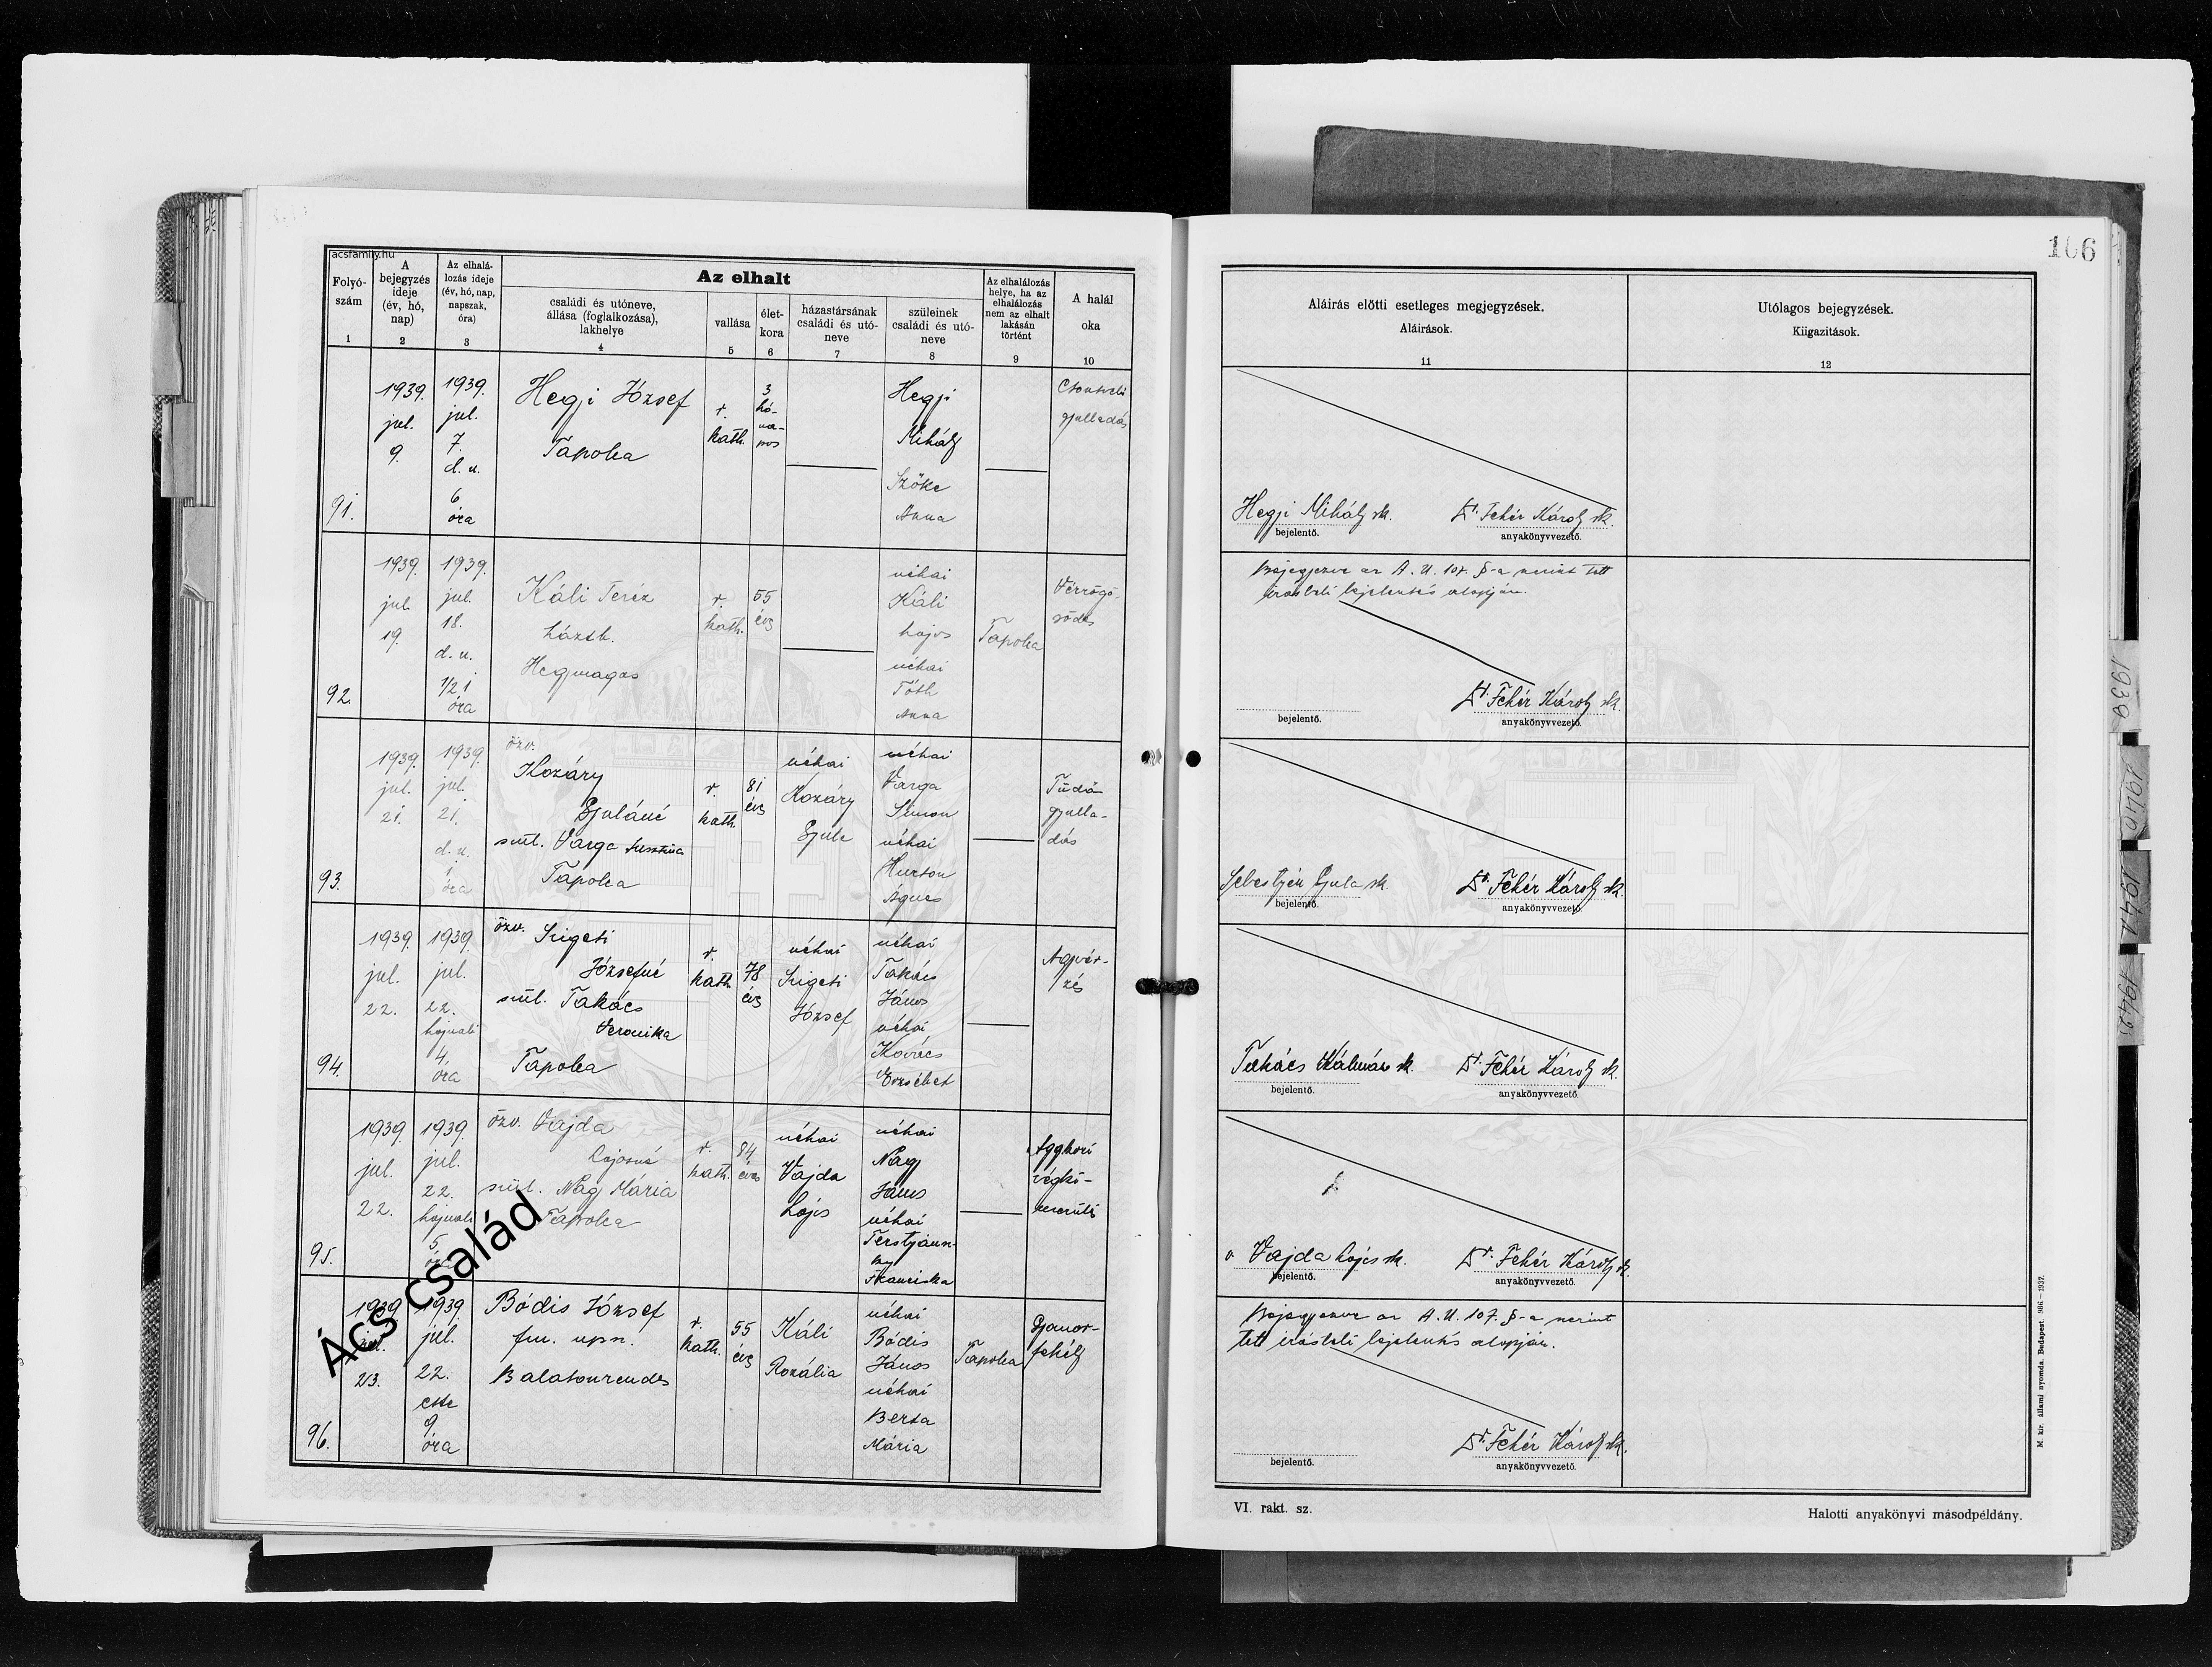 acsfamily.hu
106
Folyó-
szám
1
A
bejegyzés
ideje
(év, hó,
nap)
2
Az elhalá-
lozás ideje
(év, hó, nap,
napszak,
óra)
3
Az elhalt
családi és utóneve,
állása (foglalkozása),
lakhelye
4
vallása
5
élet-
kora
6
házastársának
családi és utó-
neve
7
szüleinek
családi és utó-
neve
8
Az elhalálozás
helye, ha az
elhalálozás
nem az elhalt
lakásán
történt
9
A halál
oka
10
Aláírás előtti esetleges megjegyzések.
Aláírások.
11
Utólagos bejegyzések.
Kiigazitások.
12
91.
1939.
jul.
9.
1939.
jul.
7.
d. u.
6
óra
Hegyi József
Tapolca
r.
kath.
3
hó-
na-
pos
Hegyi
Mihály
Szőke
Anna
gyulladás
Hegyi Mihály sk.
bejelentő.
Dr. Fehér Károly sk.
anyakönyvvezető.
92.
1939.
jul.
19.
1939.
jul.
18.
d. u.
1/2 1
óra
Káli Teréz
háztb.
Hegymagas
r.
kath.
55
éves
néhai
Káli
Lajos
néhai
Tóth
Anna
Tapolca
Vérrögö-
södés
Bejegyezve az A. U. 107. §-a szerint tett
írásbeli bejelentés alapján.
bejelentő.
Dr. Fehér Károly sk.
anyakönyvvezető.
93.
1939.
jul.
21.
1939.
jul.
21.
d. u.
1
óra
özv.
Kozáry
Gyuláné
szül. Varga
Tapolca
r.
kath.
81
éves
néhai
Kozáry
Gyula
néhai
Varga
Simon
néhai
Ágnes
Tüdő-
gyulla-
dás
Sebestyén Gyula sk.
bejelentő.
Dr. Fehér Károly sk.
anyakönyvvezető.
94.
1939.
jul.
22.
1939.
jul.
22.
hajnali
4.
óra
özv. Szigeti
Józsefné
szül. Takács
Veronika
Tapolca
r.
kath.
78
éves
néhai
Szigeti
József
néhai
Takács
János
néhai
Kovács
Erzsébet
Agyvér-
zés
Takács Kálmán sk.
bejelentő.
Dr. Fehér Károly sk.
anyakönyvvezető.
95.
1939.
jul.
22.
1939.
jul.
22.
hajnali
5
óra
özv. Vajda
Lajosné
szül. Nagy Mária
Tapolca
r.
kath.
84
éves
néhai
Vajda
Lajos
néhai
Nagy
János
néhai
Terstyáns-
ky
Franciska
Aggkori
végki-
merülés
Vajda Lajos sk.
bejelentő.
Dr. Fehér Károly sk.
anyakönyvvezető.
96.
1939
jul.
23.
1939.
jul.
22.
este
9
óra
Bódis József
fm. npsz.
Balatonrendes
r.
kath.
55
éves
Káli
Rozália
néhai
Bódis
János
néhai
Berta
Mária
Tapolca
Gyomor-
fekély
Bejegyezve az A. U. 107. §-a szerint
tett írásbeli bejelentés alapján.
bejelentő.
Dr. Fehér Károly sk.
anyakönyvvezető.
Ács család
VI. rakt. sz.
Halotti anyakönyvi másodpéldány.
M. kir. állami nyomda. Budapest. 986.—1937.
1939
1940
1941
1942